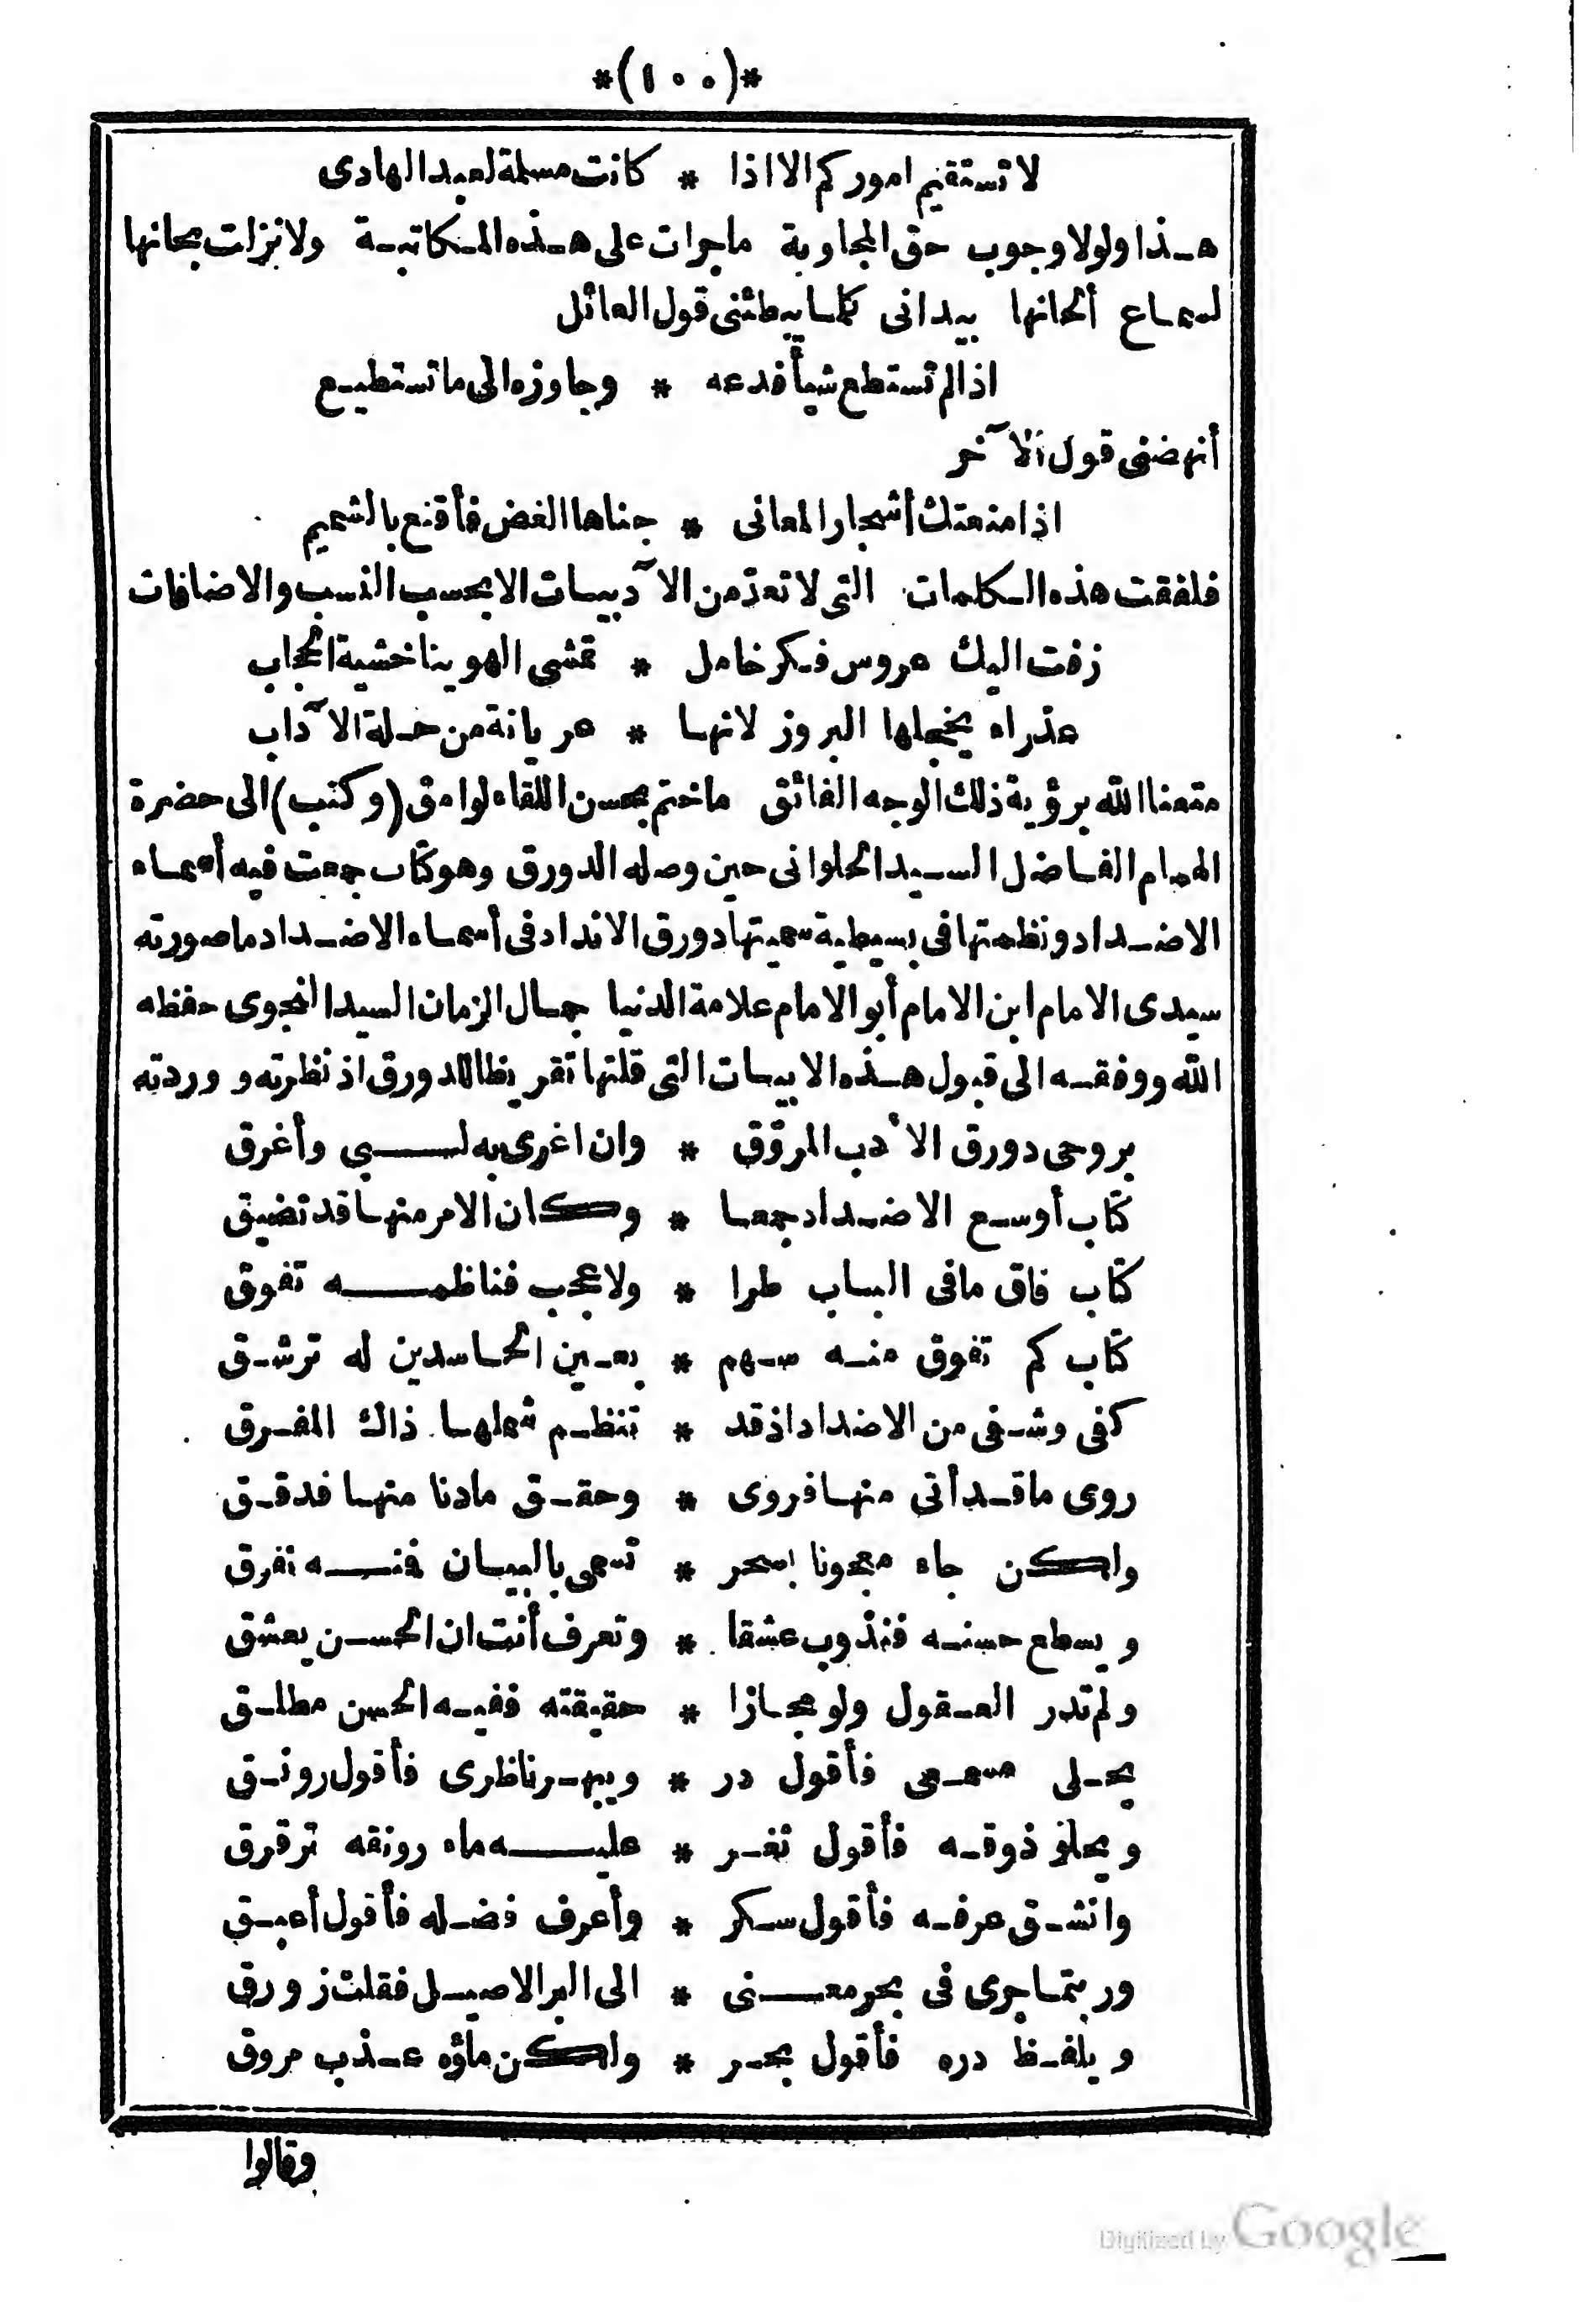 *(١٠٠)*
لا تستقيم اموركم الا اذا * كانت مسلمة لعبد الهادى
هذا ولولا وجوب حق المجاوبة ماجرات على هذه المكاتبة ولا نزلت بحانها
لسماع ألحانها بيد انى كلما يبطئنى قول القائل
اذا لم تستطع شيأ فدعه * وجاوزه الى ما تستطيع
أنهضنى قول الآخر
اذا منعتك أشجار المعانى * جناها الغض فأقنع بالشميم
فلفقت هذه الكلمات التى لا تعدّ من الآدبيات الا بحسب النسب والاضافات
زفت اليك عروس فكر خامل * تمشى الهوينا خشية الحجاب
عذراء يخجلها البروز لانها * عريانة من حلة الآداب
متعنا الله برؤية ذلك الوجه الفائق ماختم بحسن اللقاء لوامق (وكتب) الى حضرة
الهمام الفاضل السيد الحلوانى حين وصله الدورق وهو كتاب جمعت فيه أسماء
الاضداد ونظمتها فى بسيطية سميتها دورق الانداد فى أسماء الاضداد ما صورته
سيدى الامام ابن الامام أبو الامام علامة الدنيا جمال الزمان السيد النجوى حفظه
الله ووفقه الى قبول هذه الابيات التى قلتها تقريظا للدورق اذ نظرته ووردته
بروحى دورق الأدب المروّق * وان اغرى به لبى وأغرق
كتاب أوسع الاضداد جمعا * وكان الامر منها قد تضيق
كتاب فاق مافى الباب طرا * ولا عجب فناظمه تفوق
كتاب كم تفوق منه سهم * بعين الحاسدين له ترشق
كفى وشفى من الاضداد اذ قد * تنظم شملها ذاك المفرق
روى ما قد أتى منها فروى * وحقق مادنا منها فدقق
ولكن جاء معجونا بسحر * تسمى بالبيان فمنه نفرق
ويسطع حسنه فنذوب عشقا * وتعرف أنت ان الحسن يعشق
ولم تدر العقول ولو مجازا * حقيقته ففيه الحسن مطلق
يحلى مسمعى فأقول در * ويبهر ناظرى فأقول رونق
ويحلو ذوقه فأقول ثغر * عليه ماء رونقه ترقرق
وانشق عرفه فأقول سكر * وأعرف فضله فأقول أعبق
وربتما جرى فى بحر معنى * الى البر الاصيل فقلت زورق
ويلفظ دره فأقول بحر * ولكن ماؤه عذب مروق
وقالوا
Digitized by Google